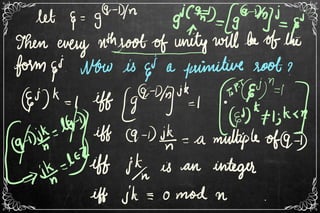 let ξ = g^((q-1)/n)
g^(j(q-1)/n) = [g^((q-1)/n)]^j = ξ^j
Then every nth root of unity will be of the
form ξ^j Now is ξ^j a primitive root?
(ξ^j)^k = 1 iff [g^((q-1)/n)]^(jk) = 1
(ξ^j)^n = 1
(ξ^j)^k ≠ 1; k < n
iff (q-1) jk/n = a multiple of (q-1)
iff jk/n is an integer
iff jk ≡ 0 mod n